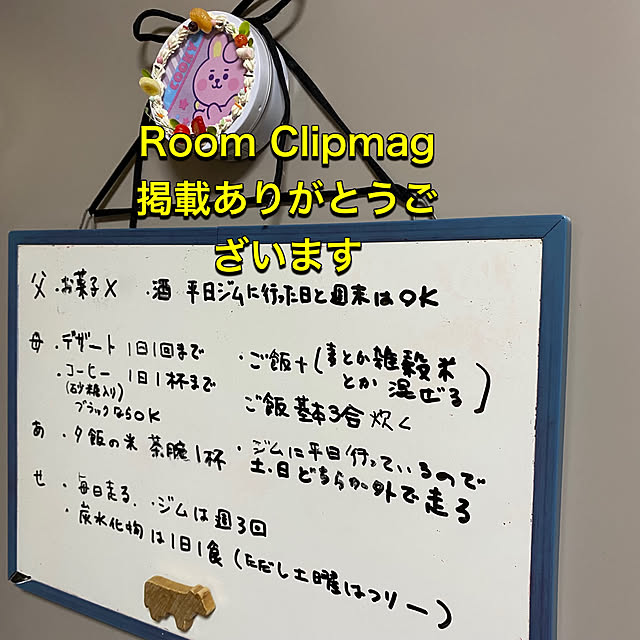 COOKY
Room Clipmag
掲載ありがとうご
ざいます
父 ・お菓子× ・酒 平日ジムに行った日と週末はOK
母 ・デザート 1日1回まで
・コーヒー 1日1杯まで
(砂糖入り)
ブラックならOK
・ご飯+(麦とか雑穀米
とか 混ぜる)
ご飯 基本3合 炊く
あ ・夕飯の米 茶腕1杯
・ジムに平日行っているので
土・日どちらか外で走る
せ ・毎日走る、・ジムは週3回
・炭水化物は1日1食(ただし土曜はフリー)